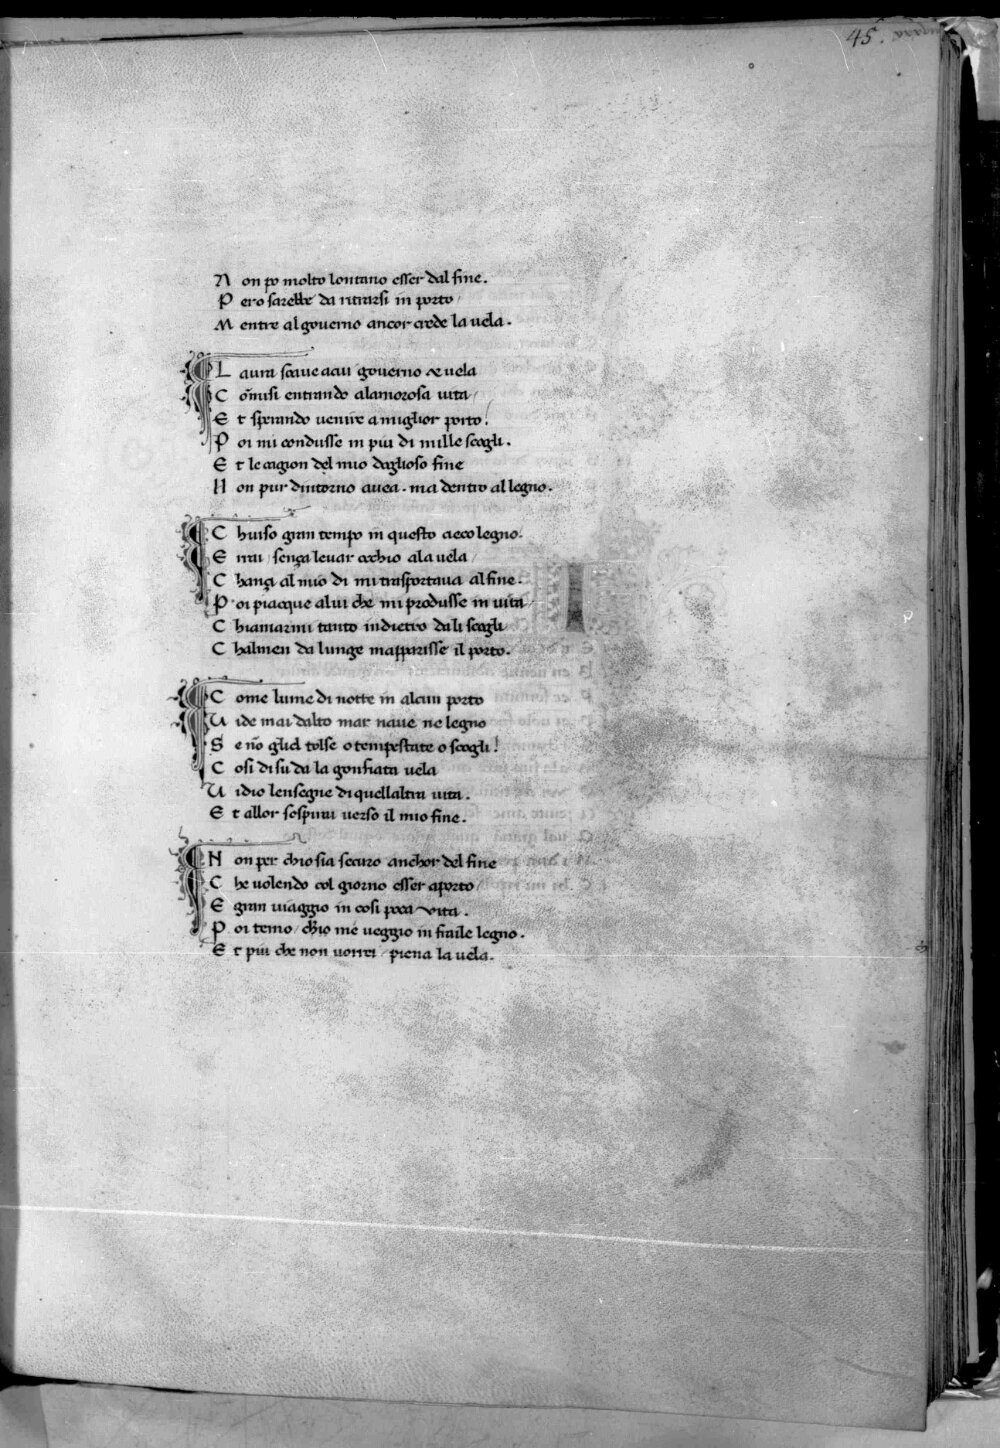 45.
N on po molto lontano esser dal fine.
P ero sarebbe da ritrarsi in porto/
M entre al gouerno ancor crede la uela.
L aura soaue acui gouerno & uela
C õmisi entrando alamorosa uita/
E t sperando uenire a miglior porto/
P oi mi condusse in piu di mille scogli.
E t le cagion del mio doglioso fine
N on pur dintorno auea. ma dentro al legno.
C hiuso gran tempo in questo cieco legno.
E rrai/ sença leuar occhio ala uela/
C hançi al mio di mi trasportaua al fine.
P oi piacque alui che mi produsse in uita/
C hiamarmi tanto indietro dali scogli/
C halmen da lunge mapparisse il porto.
C ome lume di notte in alcun porto
U ide mai dalto mar naue ne legno
S e nõ glel tolse o tempestate o scogli!
C osi di su da la gonfiata uela
U idio lensegne di quellaltra uita.
E t allor sospirai uerso il mio fine.
N on per chio sia securo anchor del fine
C he uolendo col giorno esser aporto/
E gran uiaggio in cosi poca uita.
P oi temo/ chio me ueggio in fraile legno.
E t piu che non uorrei/ piena la uela.